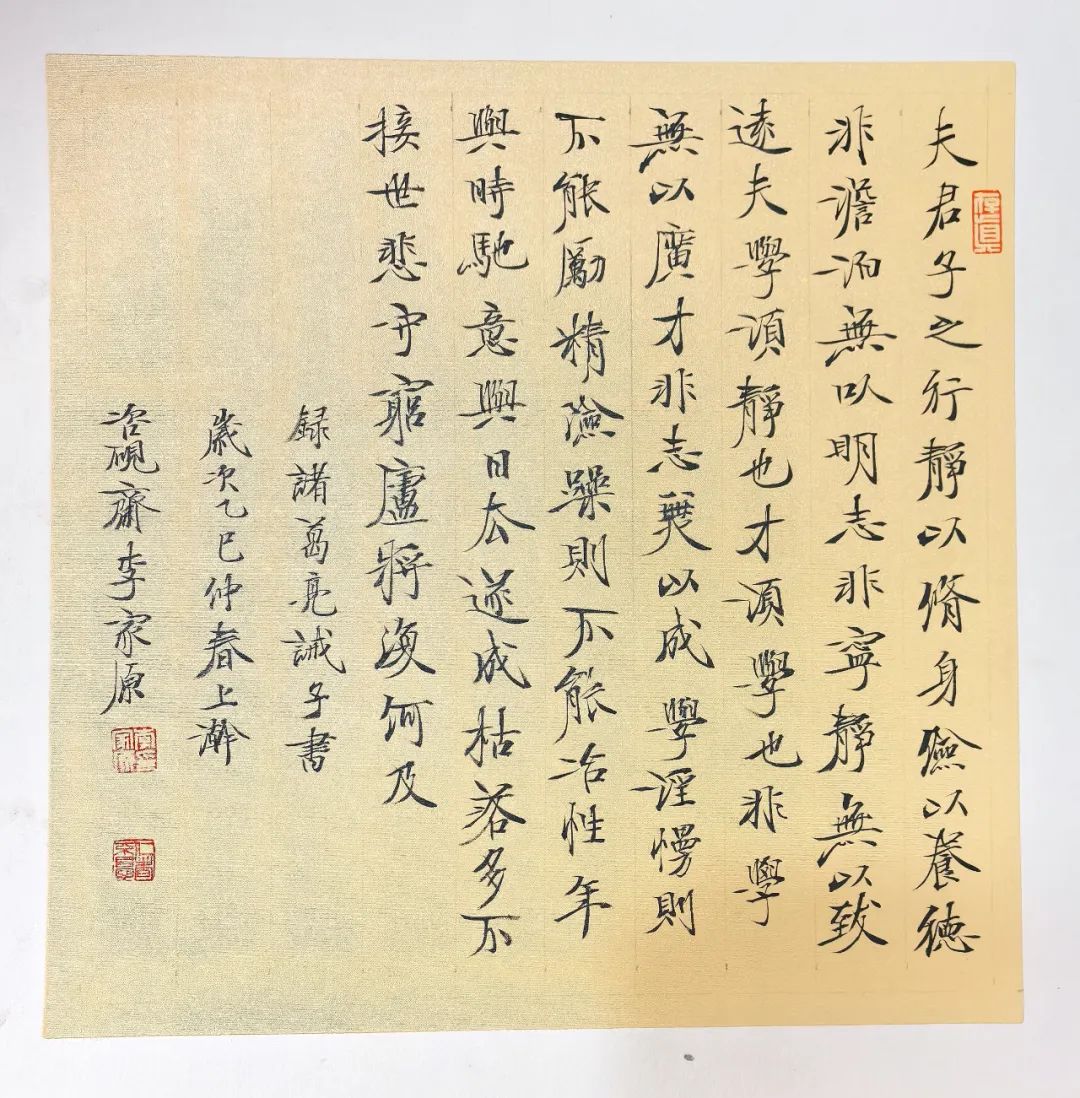 存真
夫君子之行靜以脩身儉以養德
非澹泊無以明志非寧靜無以致
遠夫學須靜也才須學也非學
無以廣才非志無以成學淫慢則
不能勵精險躁則不能冶性年
與時馳意與日去遂成枯落多不
接世悲守窮廬將復何及
録諸葛亮誡子書
歲次乙巳仲春上澣
硯齋李家原